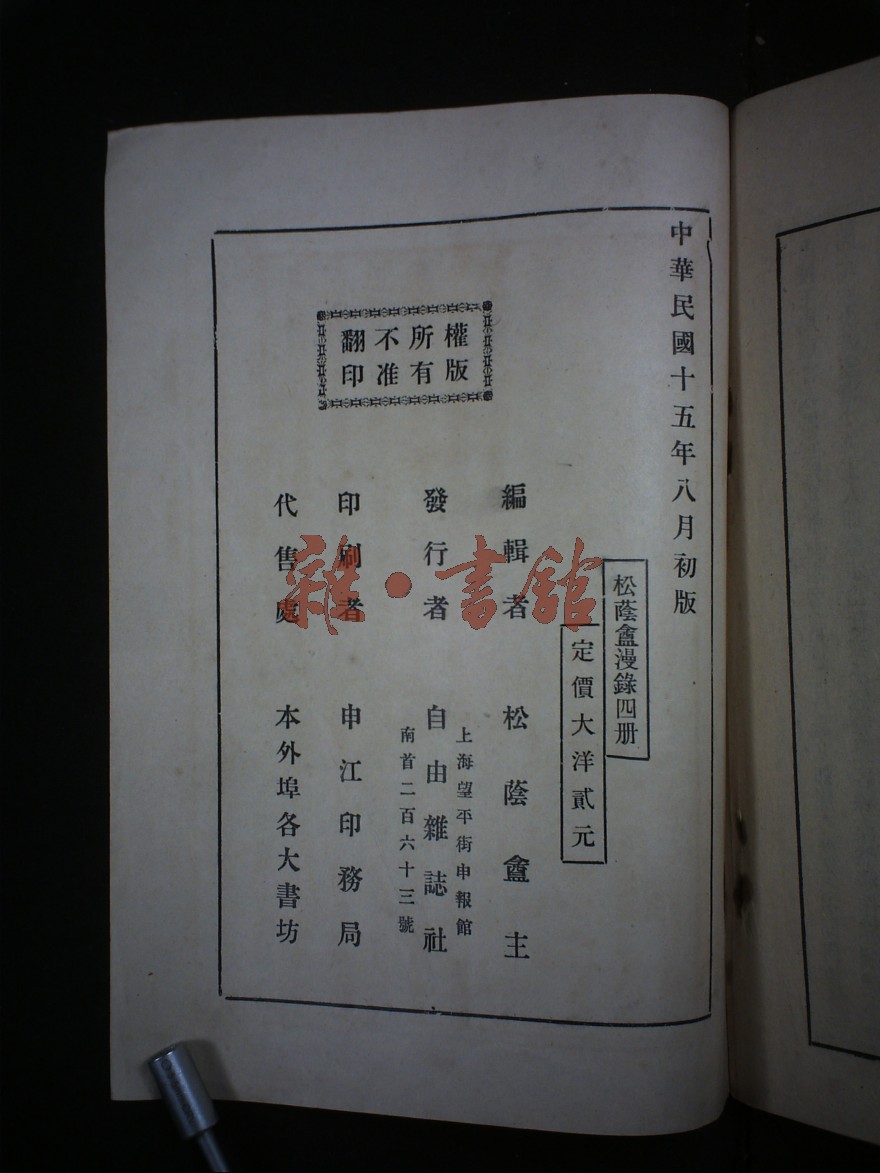 中華民國十五年八月初版
松蔭盦漫錄四册
定價大洋貳元
編輯者 松蔭盦主
上海望平街申報館
發行者 自由雜誌社
南首二百六十三號
印刷者 申江印務局
代售處 本外埠各大書坊
權版
所有
不准
翻印
雜·書館